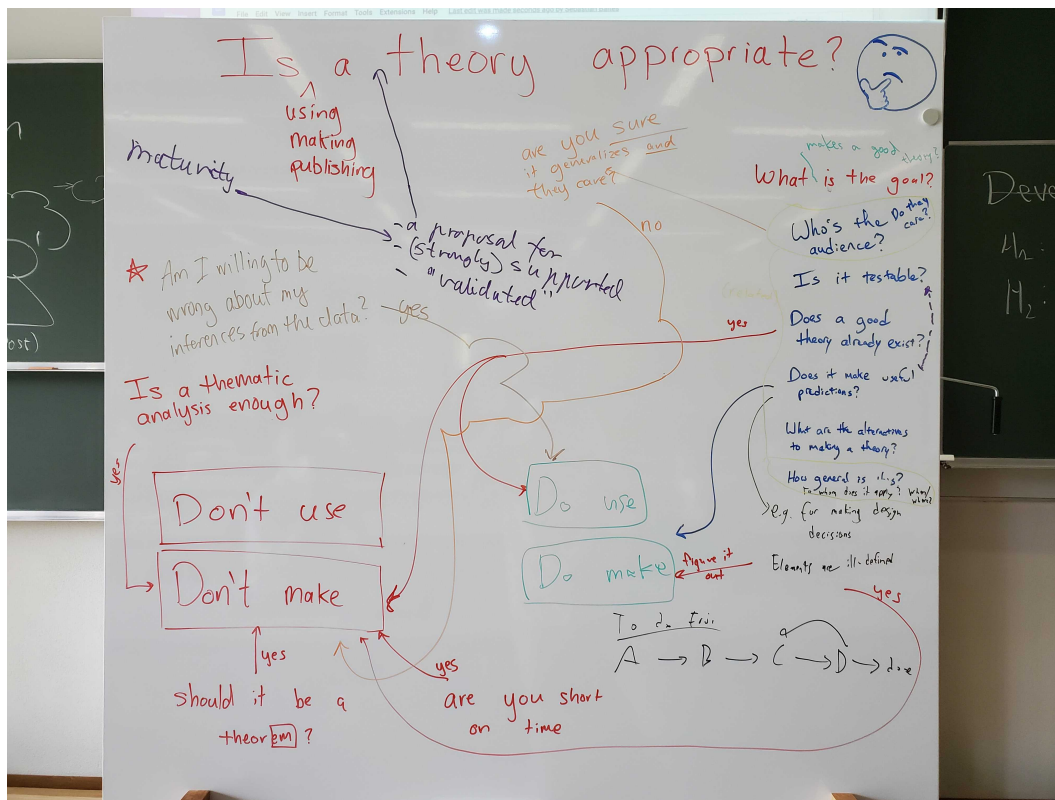 File Edit View Insert Format Tools Extensions Help
Is a theory appropriate?
using
making
publishing
maturity
- a proposal for
- (strongly) supported
- "validated"
are you sure
it generalizes and
they care?
no
makes a good theory?
What is the goal?
Who's the
audience?
Do they
care?
Is it testable?
Does a good
theory already exist?
yes
Does it make useful
predictions?
What are the alternatives
to making a theory?
How general is this?
To whom does it apply? When/
where?
e.g. for making design
decisions
Elements are ill-defined
figure it
out
yes
Am I willing to be
wrong about my
inferences from the data?
yes
Is a thematic
analysis enough?
yes
Don't use
Don't make
Do use
Do make
yes
should it be a
theorem?
yes
are you short
on time
A B C D done
Deve
H₂:
ost)